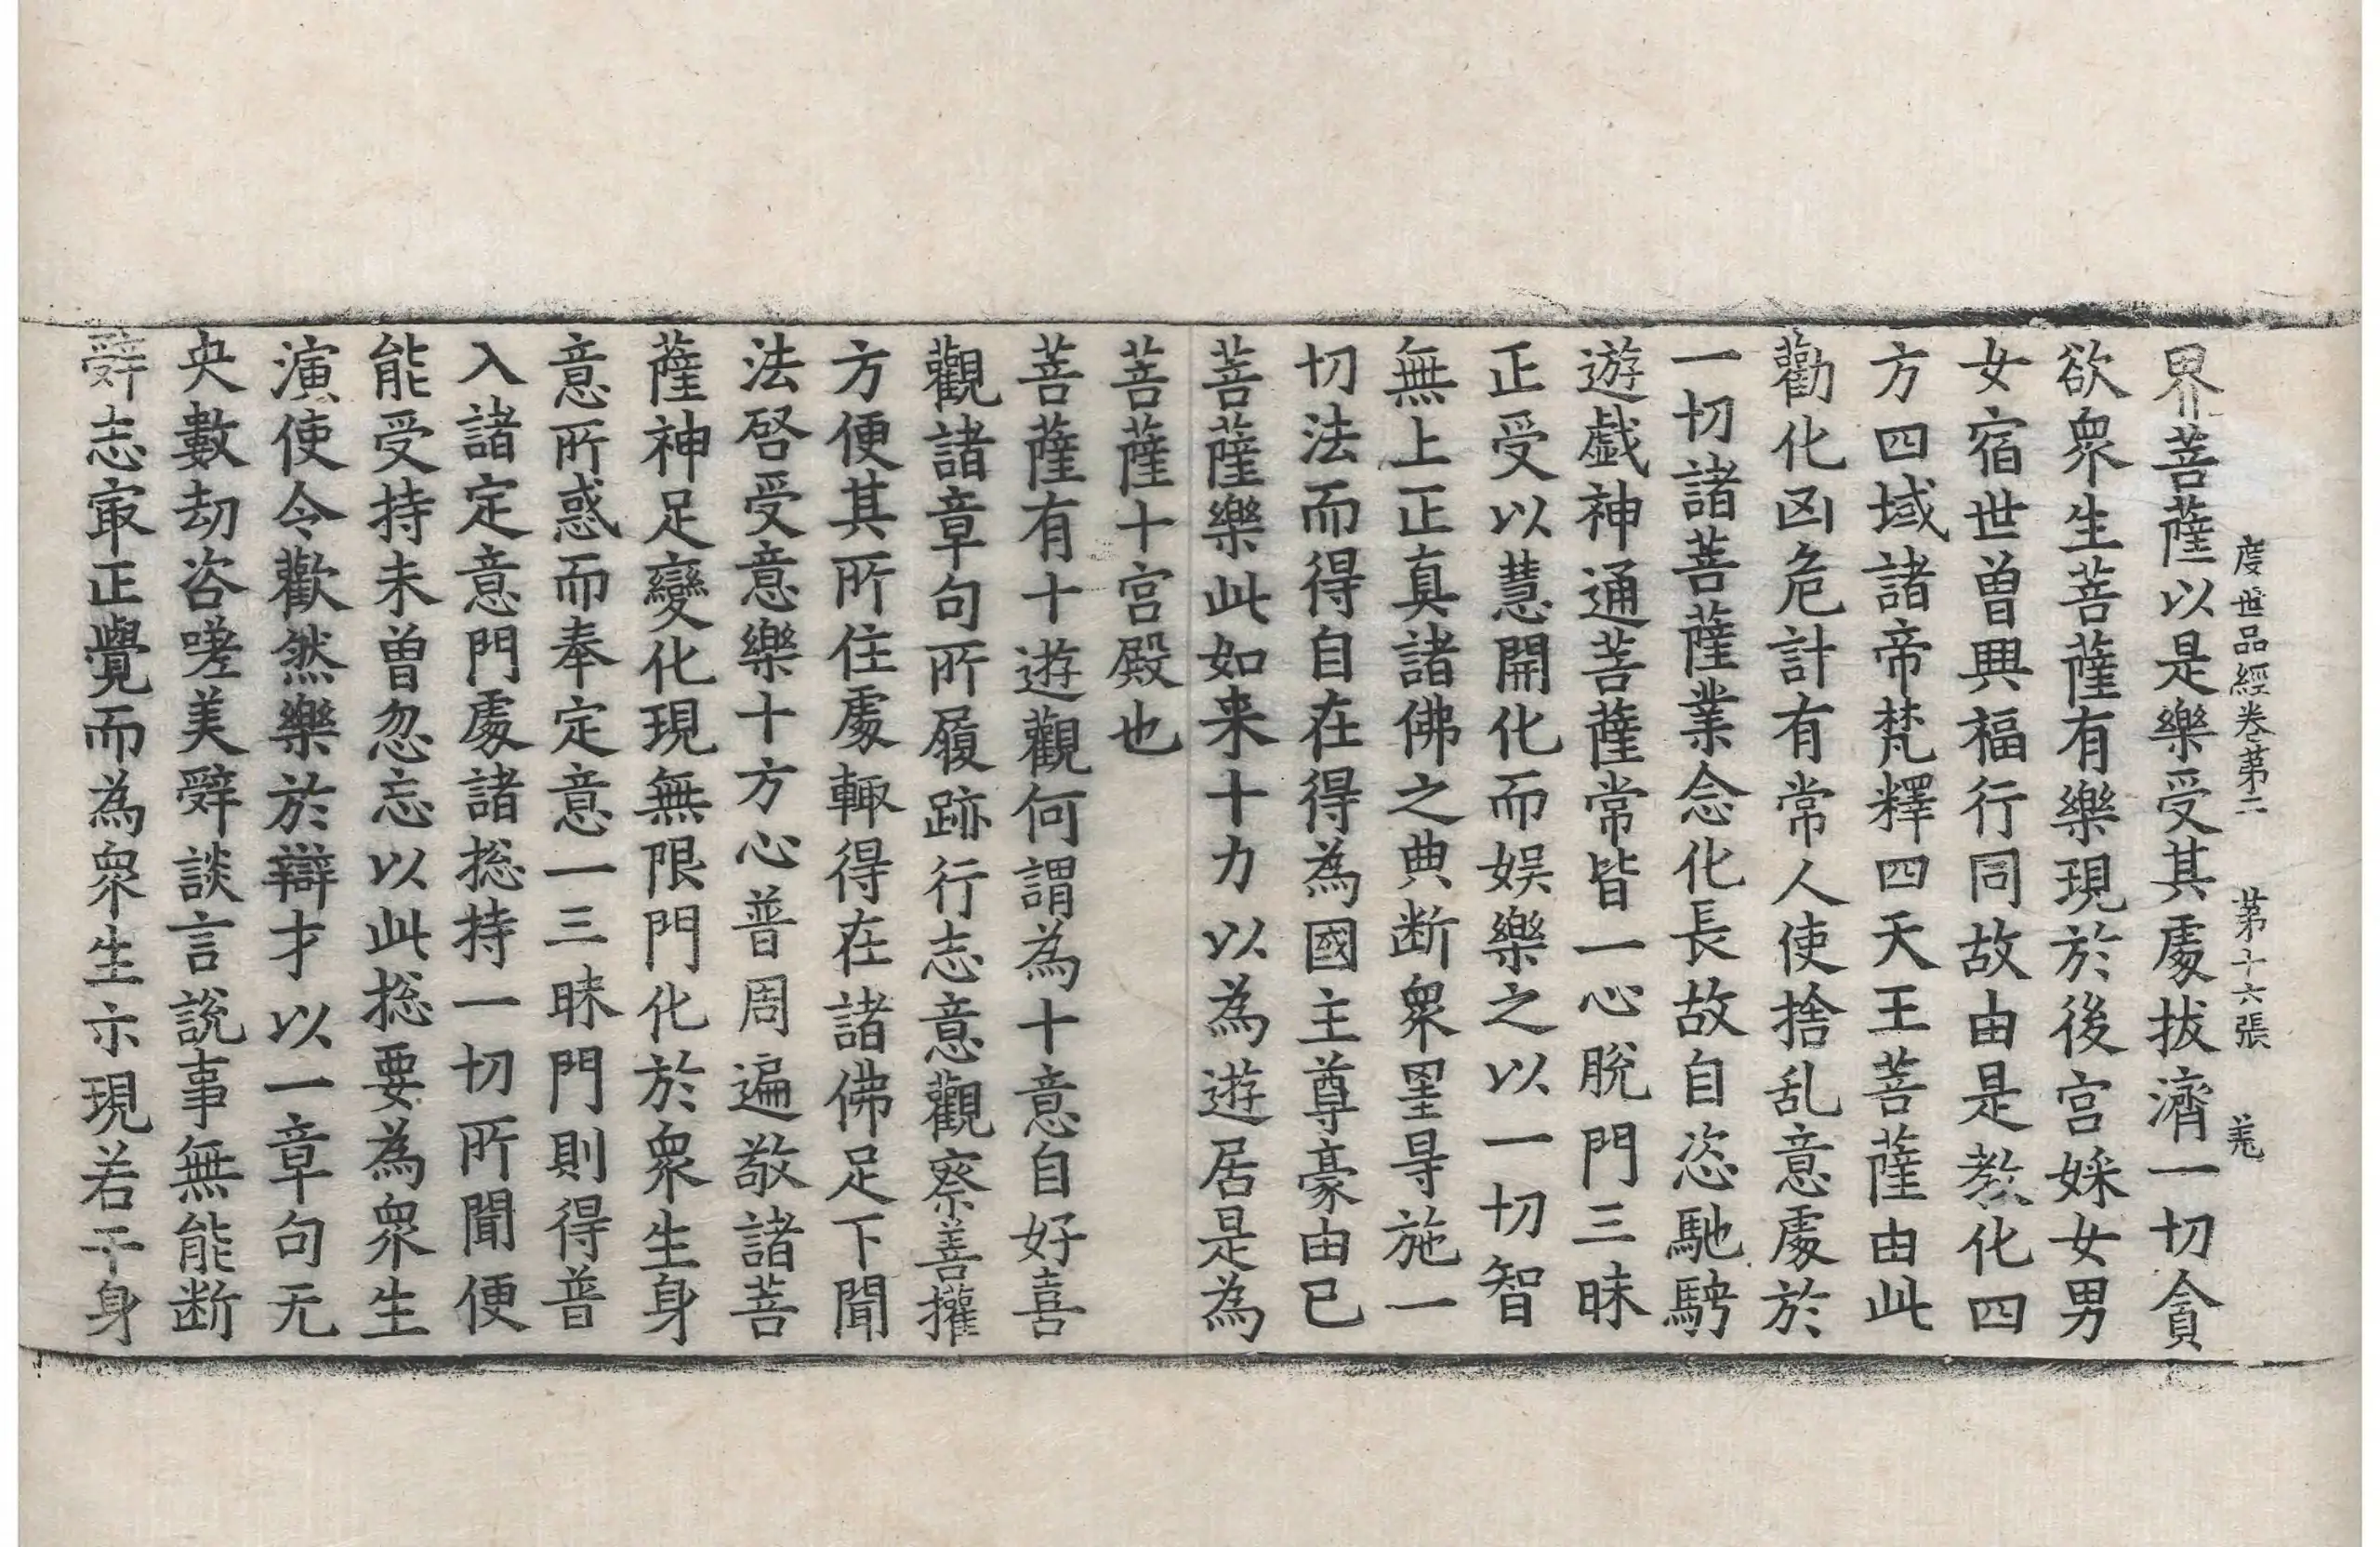 度世品經卷第二 第十六張 羗
界菩薩以是樂受其處拔濟一切貪
欲衆生菩薩有樂現於後宮婇女男
女宿世曾興福行同故由是教化四
方四域諸帝梵釋四天王菩薩由此
勸化凶危計有常人使捨乱意處於
一切諸菩薩業念化長故自恣馳騁
遊戲神通菩薩常皆一心脫門三昧
正受以慧開化而娱樂之以一切智
無上正真諸佛之典断衆罣㝵施一
切法而得自在得為國主尊豪由已
菩薩樂此如来十力以為遊居是為
菩薩十宮殿也
菩薩有十遊觀何謂為十意自好喜
觀諸章句所履跡行志意觀察善攉
方便其所住處輙得在諸佛足下聞
法啓受意樂十方心普周遍敬諸菩
薩神足變化現無限門化於衆生身
意所惑而奉定意一三昧門則得普
入諸定意門處諸捴持一切所聞便
能受持未曾忽忘以此捴要為衆生
演使令歡然樂於辯才以一章句无
央數劫咨嗟美辝談言說事無能断
辝志㝡正覺而為衆生示現若干身